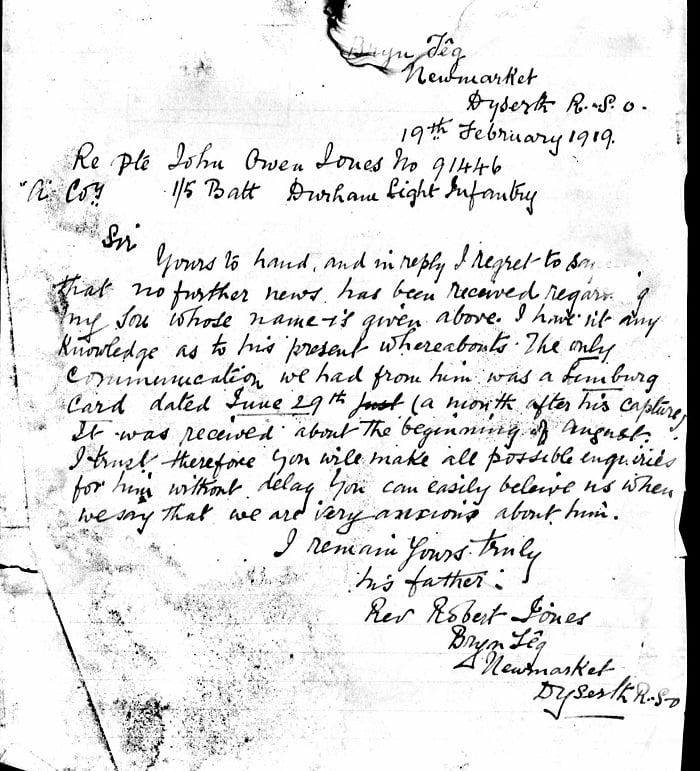 Bryn Têg
Newmarket
Dyserth R.S.O.
19th February 1919.
Re Pte John Owen Jones No 91446
"A" Coy 1/5 Batt Durham Light Infantry
Sir
Yours to hand, and in reply I regret to say
that no further news has been received regarding
my son whose name is given above. I have n't any
knowledge as to his present whereabouts. The only
communication we had from him was a Limburg
card dated June 29th (a month after his capture)
It was received about the beginning of August.
I trust therefore you will make all possible enquiries
for him without delay you can easily beleive us when
we say that we are very anxious about him.
I remain Yours truly
his father:
Rev Robert Jones
Bryn Têg
Newmarket
Dyserth R.S.O